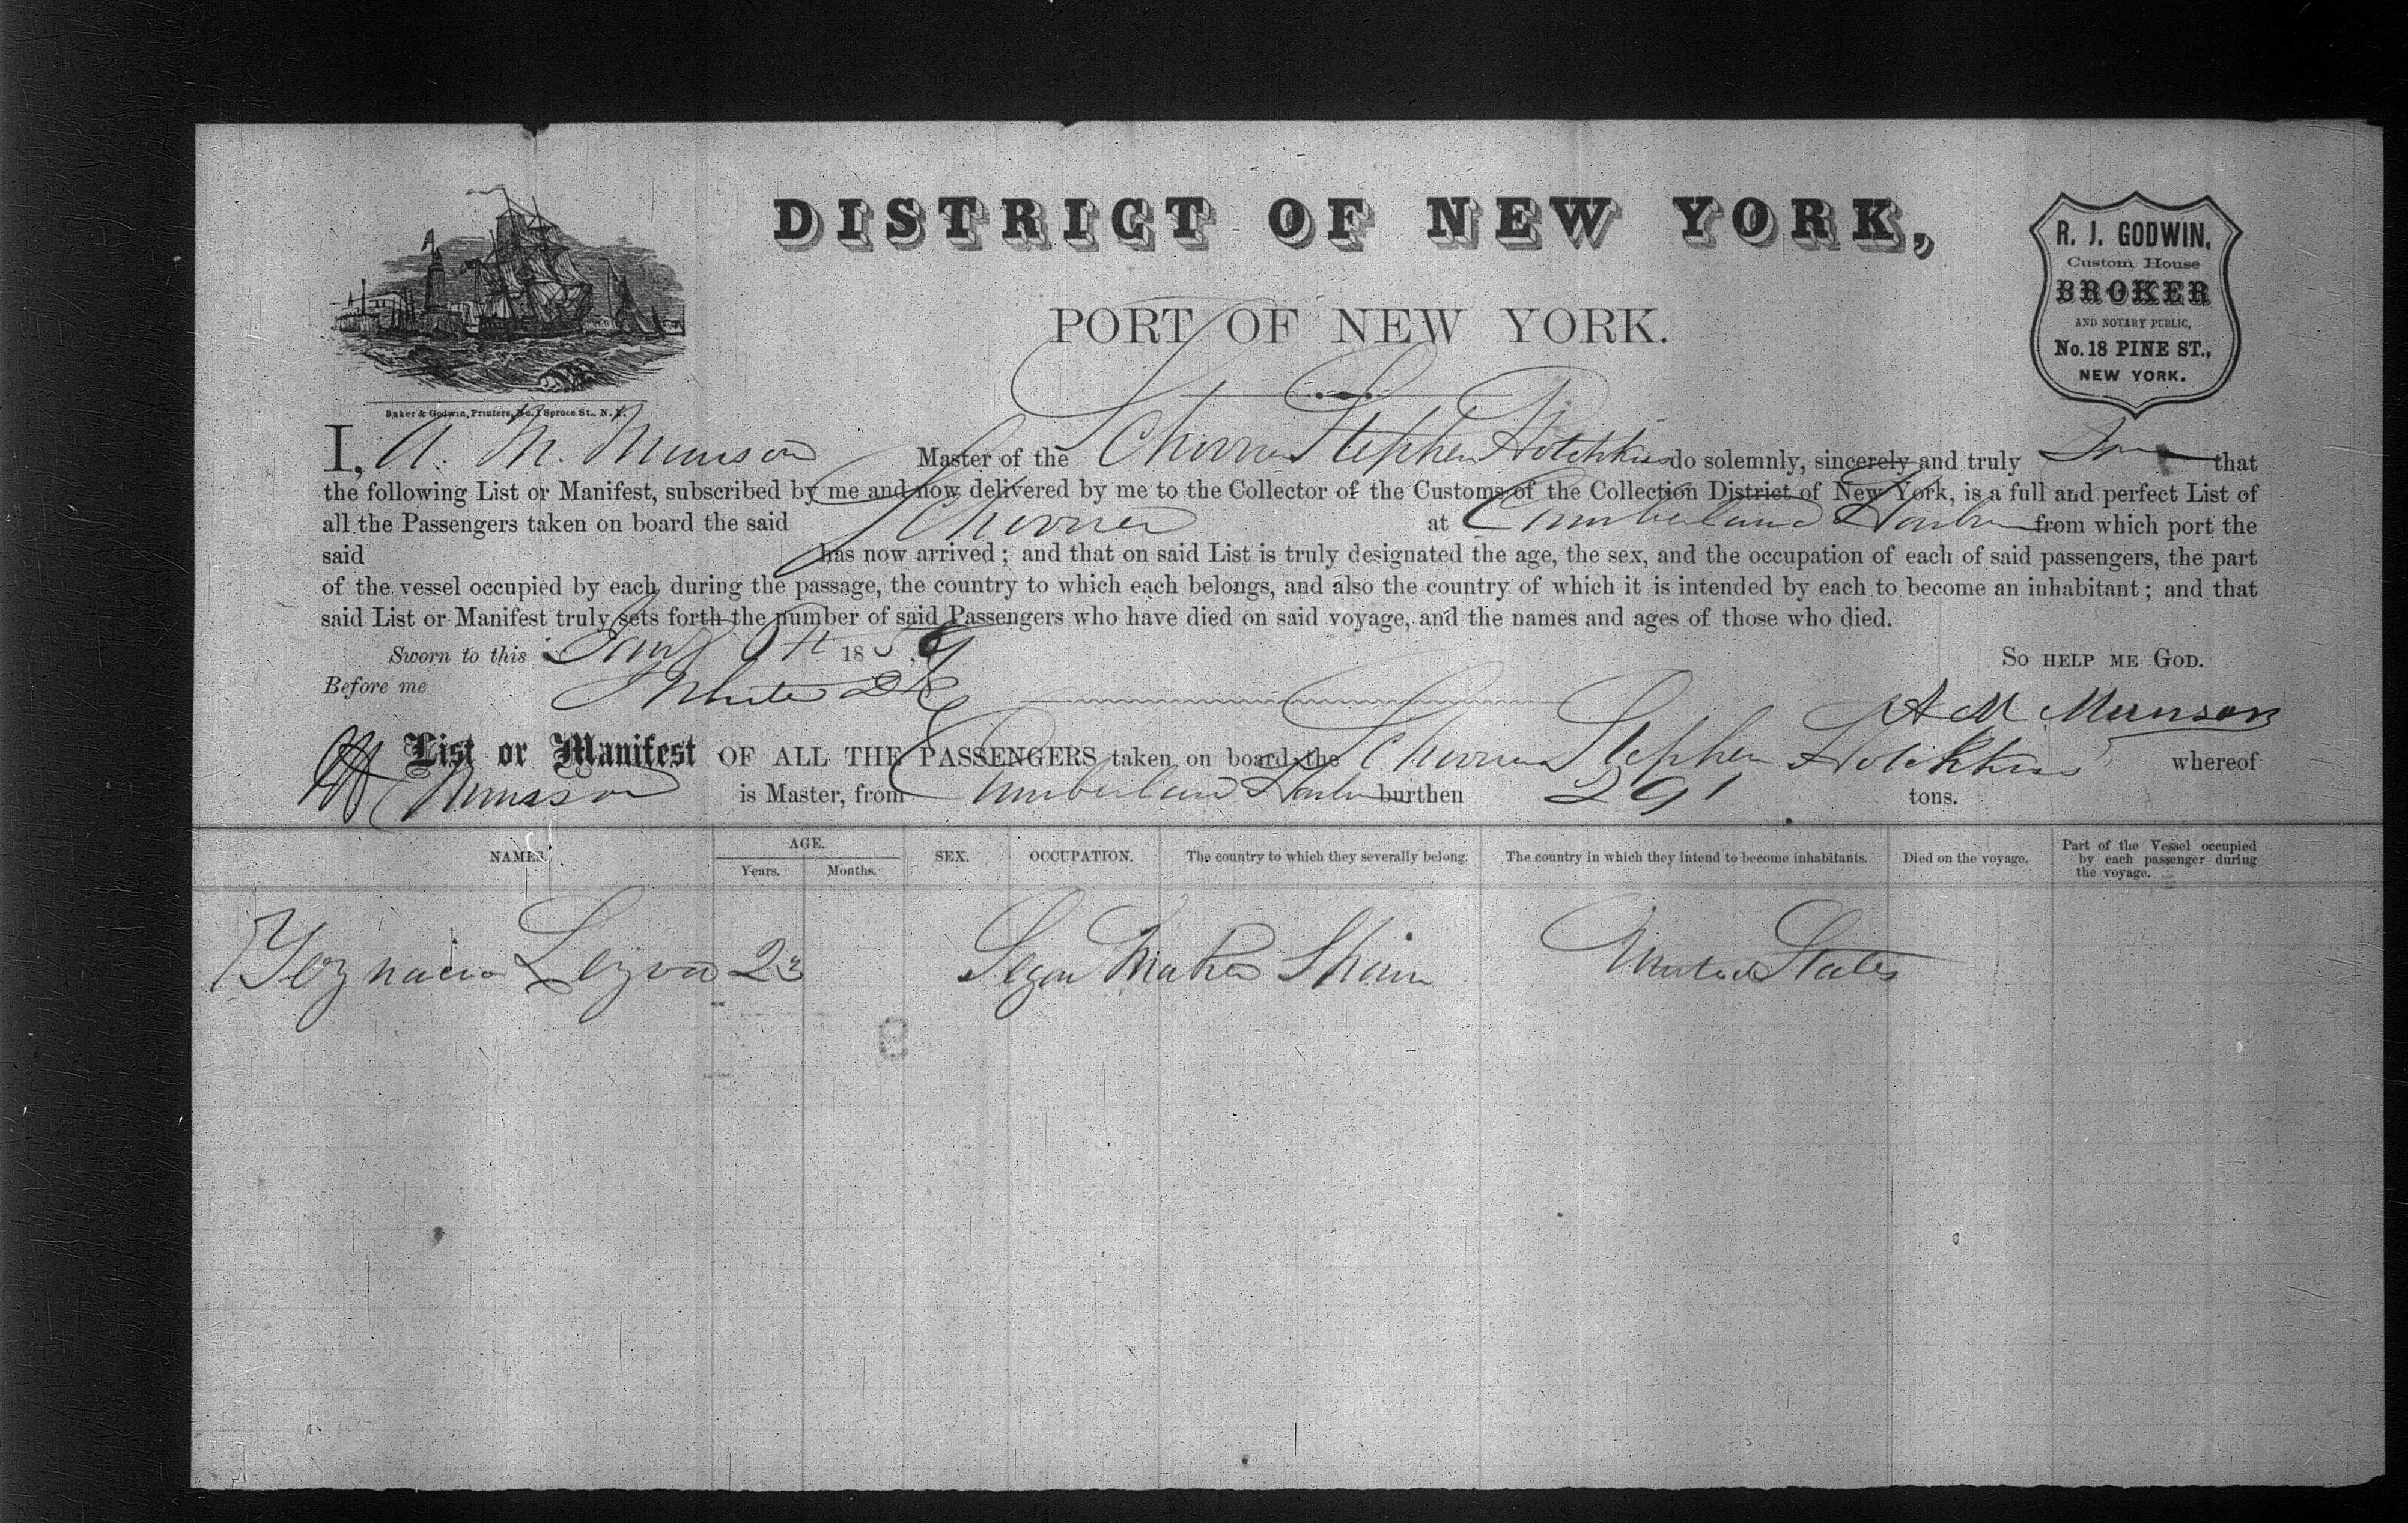 DISTRICT OF NEW YORK,
PORT OF NEW YORK.
R. J. GODWIN,
Custom House
BROKER
AND NOTARY PUBLIC,
No. 18 PINE ST.,
NEW YORK.
Baker & Godwin, Printers, No. 1 Spruce St., N. Y.
I, A. M. Munson Master of the Schooner Stephen Hotchkiss do solemnly, sincerely and truly that
the following List or Manifest, subscribed by me and now delivered by me to the Collector of the Customs of the Collection District of New York, is a full and perfect List of
all the Passengers taken on board the said Schooner at Cumberland Harbor from which port the
said has now arrived; and that on said List is truly designated the age, the sex, and the occupation of each of said passengers, the part
of the vessel occupied by each during the passage, the country to which each belongs, and also the country of which it is intended by each to become an inhabitant; and that
said List or Manifest truly sets forth the number of said Passengers who have died on said voyage, and the names and ages of those who died.
Sworn to this Jany 1859 So help me God.
Before me White A M Munson
List or Manifest OF ALL THE PASSENGERS taken on board the Schooner Stephen Hotchkiss whereof
Munson is Master, from Cumberland Harbor burthen 291 tons.
NAMES. AGE. Years. Months. SEX. OCCUPATION. The country to which they severally belong. The country in which they intend to become inhabitants. Died on the voyage. Part of the Vessel occupied by each passenger during the voyage.
Yeznacio Lezva 23 Segar Maker Spain United States